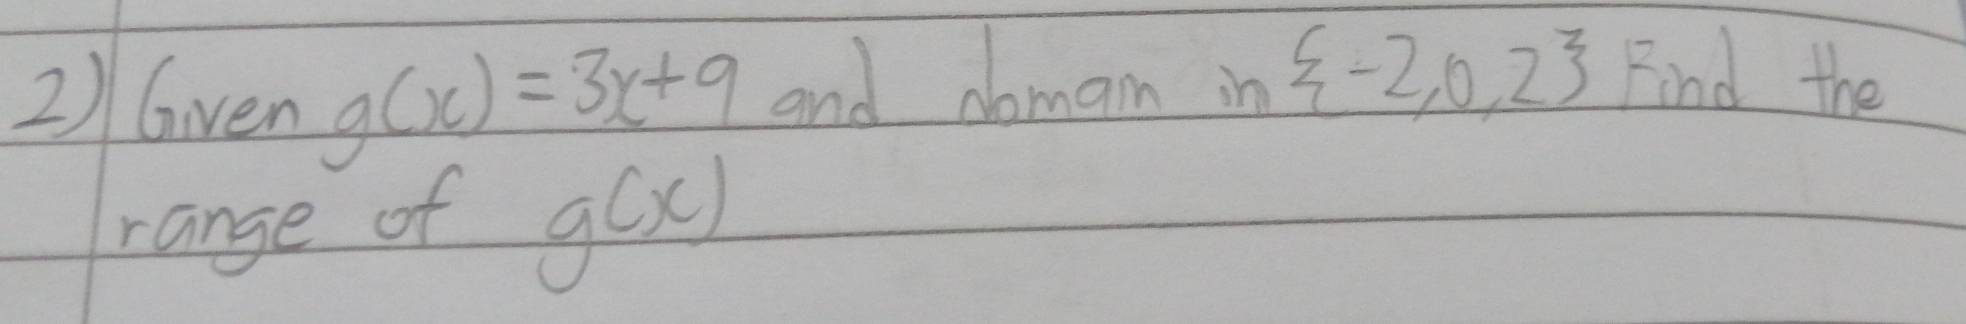 2) Given g(x) = 3x+9 and domain in {-2,0,2} Find the
range of g(x)